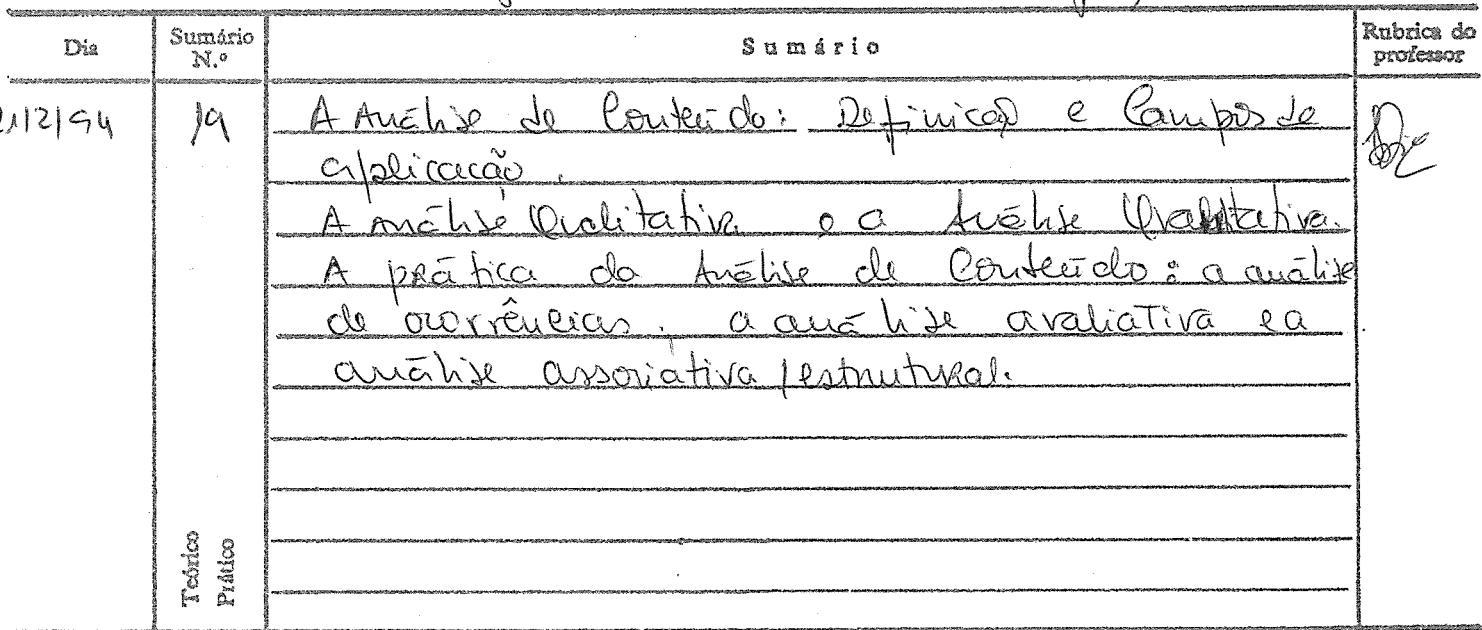 Dia
Sumário N.º
Sumário
Rubrica do professor
19
A Análise de Conteúdo: Definição e Campos de
aplicação.
A Análise Qualitativa e a Análise
A prática da Análise de Conteúdo: a análise
de ocorrências, a análise avaliativa e a
análise associativa/estrutural.
Teórico
Prático